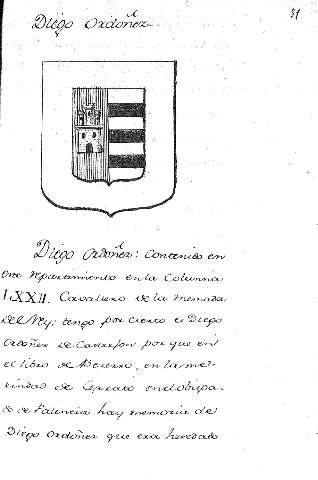 Diego Ordoñez
31
Diego Ordoñez: Contenido en
otro repartimiento en la Columna
LXXII. Cavallero de la mesnada
del Rey: tengo por cierto es Diego
Ordoñez de por que en
el libro de Bezerro, en la me-
rindad de Cerrato en el obispa-
do de Palencia hay memoria de
Diego Ordoñez que era heredado